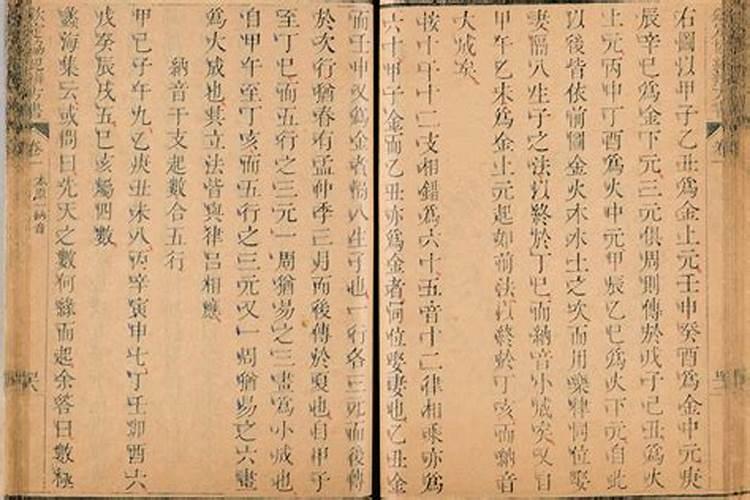 右圖以甲子乙丑為金上元壬申癸酉為金中元庚
辰辛巳為金下元三元俱周則傳於戊子己丑為火
上元丙申丁酉為火中元甲辰乙巳為火下元自此
以後皆依前圖金火木水土之次而用樂律同位娶
妻隔八生子之法以終於丁巳而納音小成矣又自
甲午乙未為金上元起如前法以終於丁亥而納音
大成矣
按十干十二支相錯為六十五音十二律相乘亦為
六十甲子金而乙丑亦為金者同位娶妻也乙丑金
而壬申又為金者隔八生子也一行各三元而後傳
於次行猶春有孟仲季三月而後傳於夏也自甲子
至丁巳而五行之三元一周猶易之三畫為小成也
自甲午至丁亥而五行之三元又一周猶易之六畫
為大成也其立法皆與律呂相應
納音干支起數合五行
甲己子午九乙庚丑未八丙辛寅申七丁壬卯酉六
戊癸辰戌五巳亥屬四數
蠡海集云或問曰先天之數何緣而起余答曰數極
卷一
本原一
納音
卷一